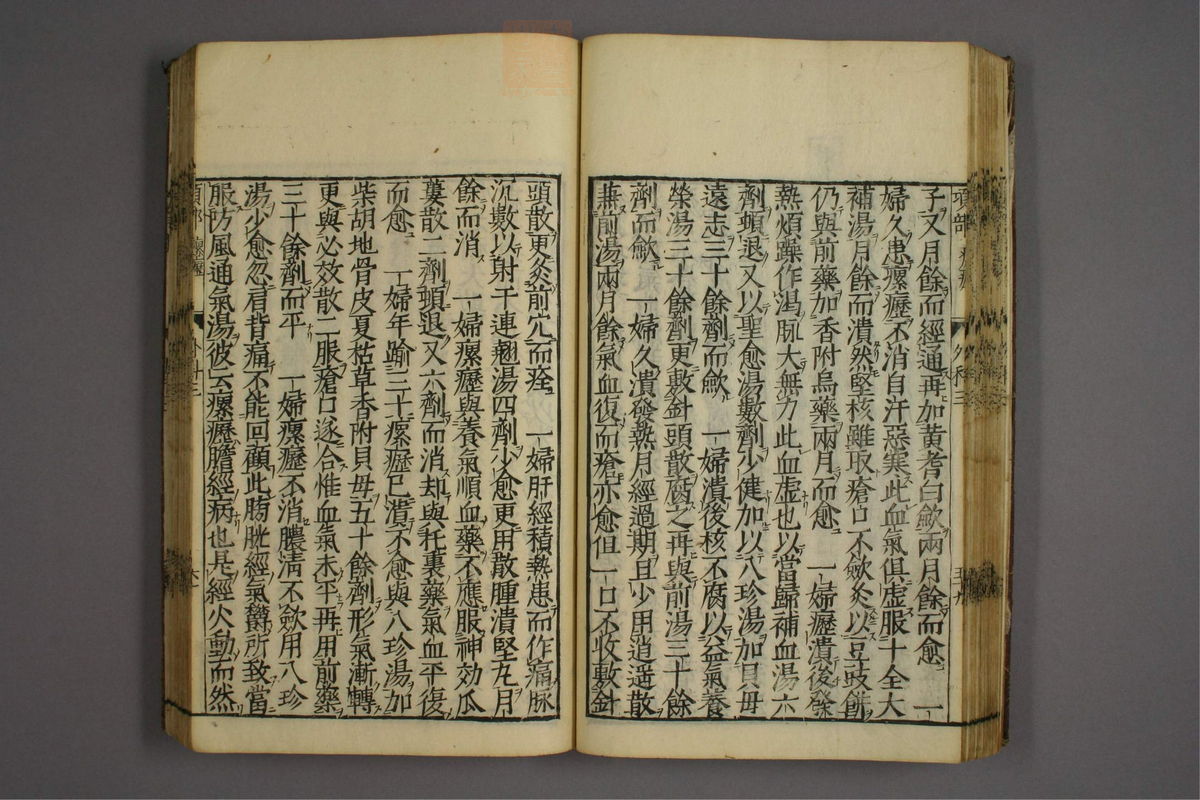 子又月餘而經通再加黃耆白歛兩月餘而愈　一
婦久患瘰癧不消自汗惡寒此血氣俱虛服十全大
補湯月餘而潰然堅核雖取瘡口不歛灸以豆豉餅
仍與前藥加香附烏藥兩月而愈　一婦癧潰後發
熱煩躁作渴脉大無力此血虛也以當歸補血湯六
劑頓退又以聖愈湯數劑少健加以八珍湯加貝母
遠志三十餘劑而歛　一婦潰後核不腐以益氣養
榮湯三十餘劑更敷針頭散腐之再與前湯三十餘
劑而歛　一婦久潰發熱月經過期且少用逍遥散
兼前湯兩月餘氣血復而瘡亦愈但一口不收敷針
頭散更灸前穴而痊　一婦肝經積熱患而作痛脉
沉數以射干連翹湯四劑少愈更用散腫潰堅丸月
餘而消　一婦瘰癧與養氣順血藥不應服神効瓜
蔞散二劑頓退又六劑而消却與托裏藥氣血平復
而愈　一婦年踰三十瘰癧已潰不愈與八珍湯加
柴胡地骨皮夏枯草香附貝母五十餘劑形氣漸轉
更與必效散二服瘡口遂合惟血氣未平再用前藥
三十餘劑而平　一婦瘰癧不消膿清不歛用八珍
湯少愈忽肩背痛不能回顧此膀胱經氣欝所致當
服防風通氣湯彼云瘰癧膽經病也是經火動而然